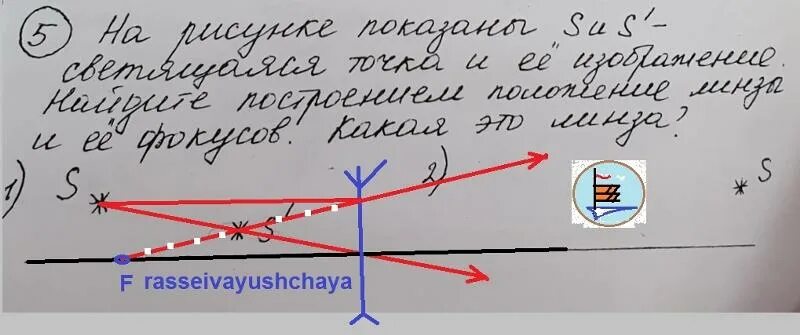 5 На рисунке показаны S и S' -
светящаяся точка и её изображение.
Найдите построением положение линзы
и её фокусов. Какая это линза?
1) S S' 2) S
F rasseivayushchaya